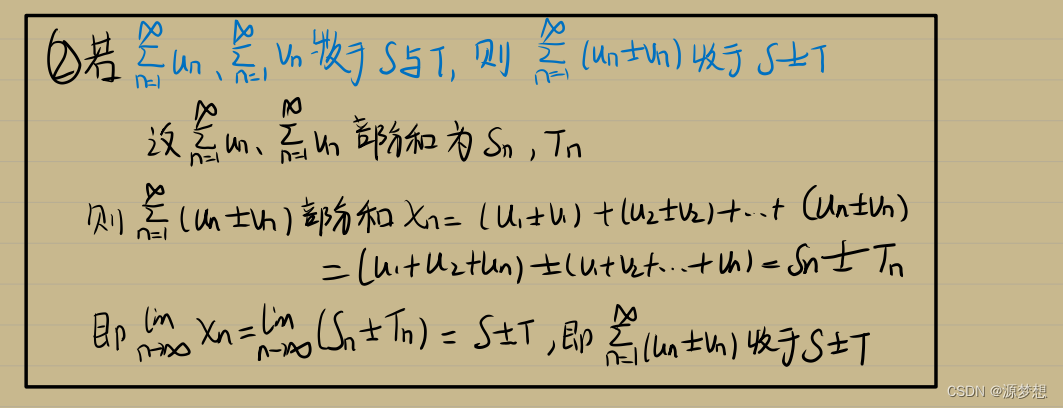 ②若 ∑_{n=1}^{∞} u_n、∑_{n=1}^{∞} v_n 收于 S 与 T, 则 ∑_{n=1}^{∞} (u_n±v_n) 收于 S±T
设 ∑_{n=1}^{∞} u_n、∑_{n=1}^{∞} v_n 部分和为 S_n, T_n
则 ∑_{n=1}^{∞} (u_n±v_n) 部分和 x_n = (u_1±v_1)+(u_2±v_2)+…+(u_n±v_n)
=(u_1+u_2+u_n)±(v_1+v_2+…+v_n)=S_n±T_n
即 lim_{n→∞} x_n = lim_{n→∞} (S_n±T_n) = S±T, 即 ∑_{n=1}^{∞} (u_n±v_n) 收于 S±T
CSDN @源梦想